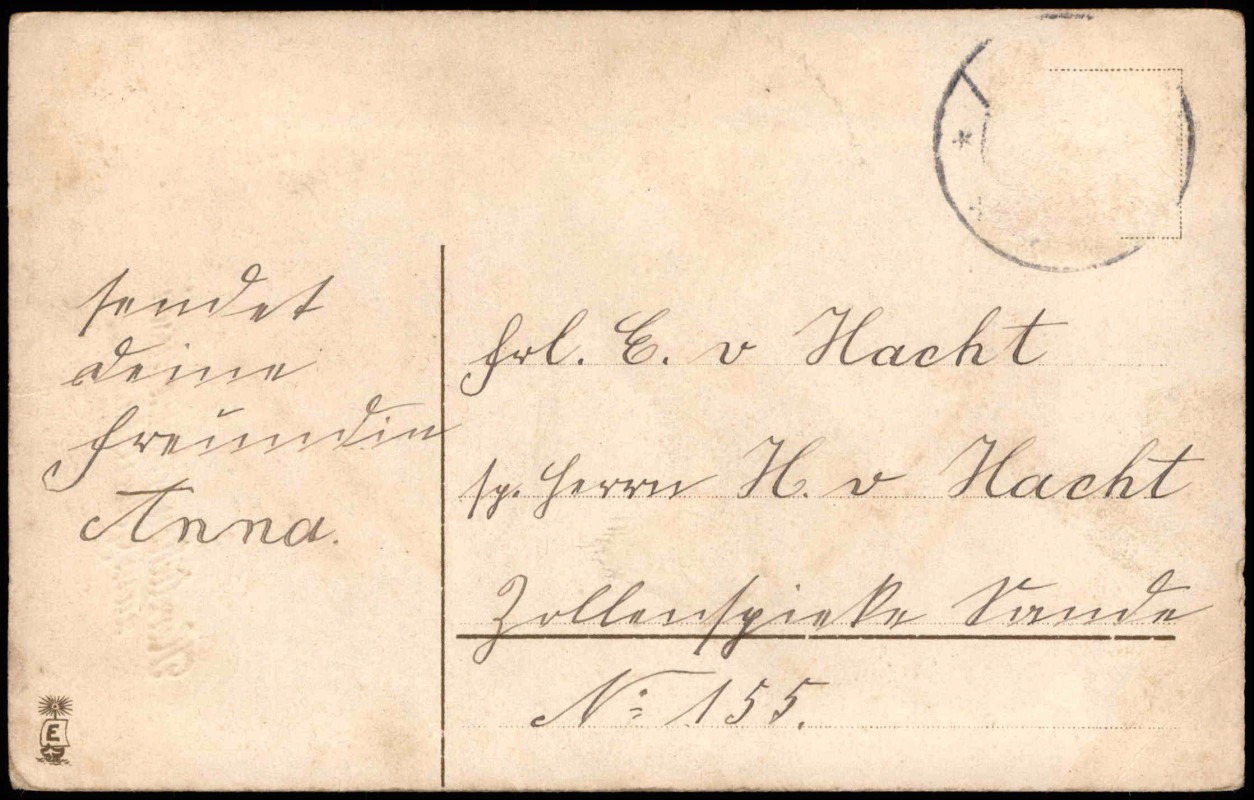 sendet
deine
Freundin
Anna.
Frl. E. v Hacht
sp. Herrn H. v Hacht
Zollenspieke Sande
No 155.
E